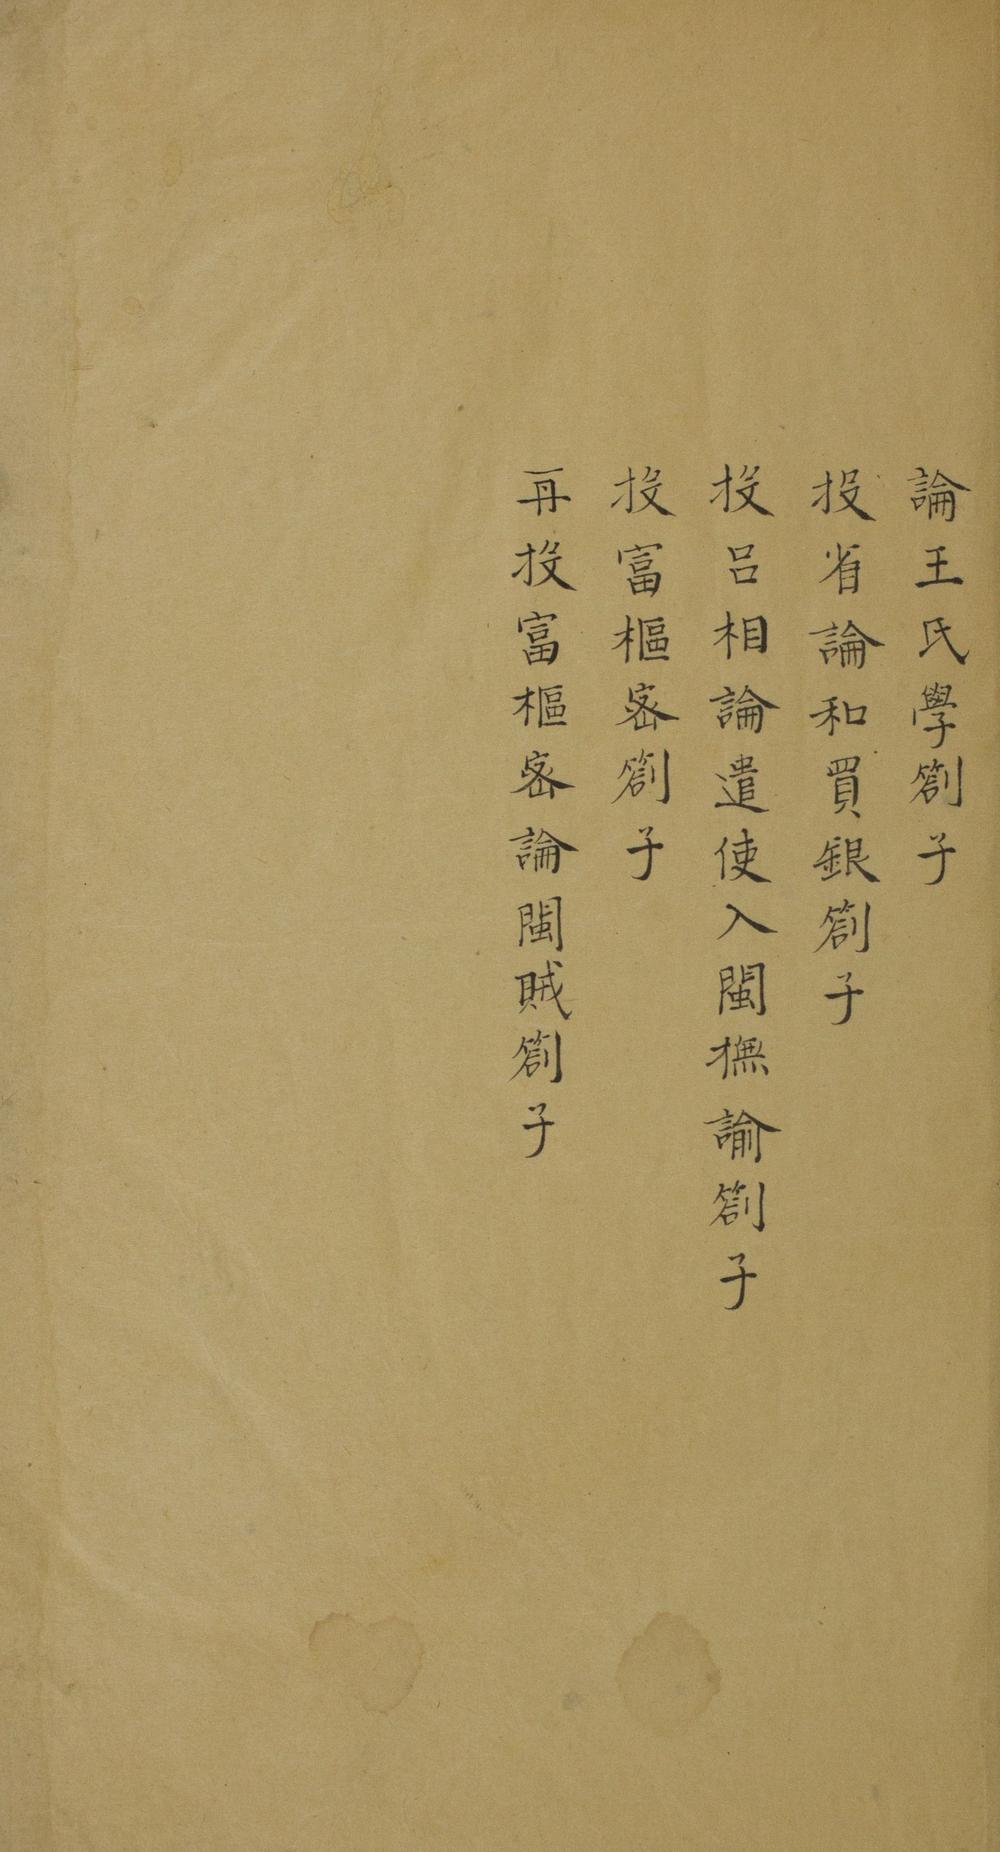 論王氏學劄子
投省論和買銀劄子
投呂相論遣使入閩撫諭劄子
投富樞密劄子
再投富樞密論閩賊劄子